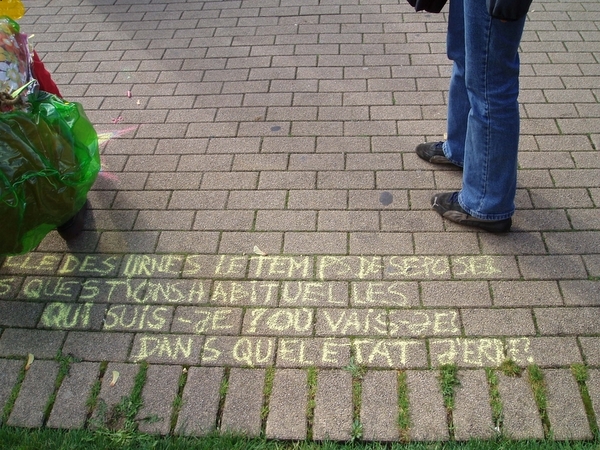 DES URNES LE TEMPS DE SE POSER
QUESTIONS HABITUELLES
QUI SUIS-JE ? OU VAIS-JE?
DANS QUEL ETAT J'ERRE?